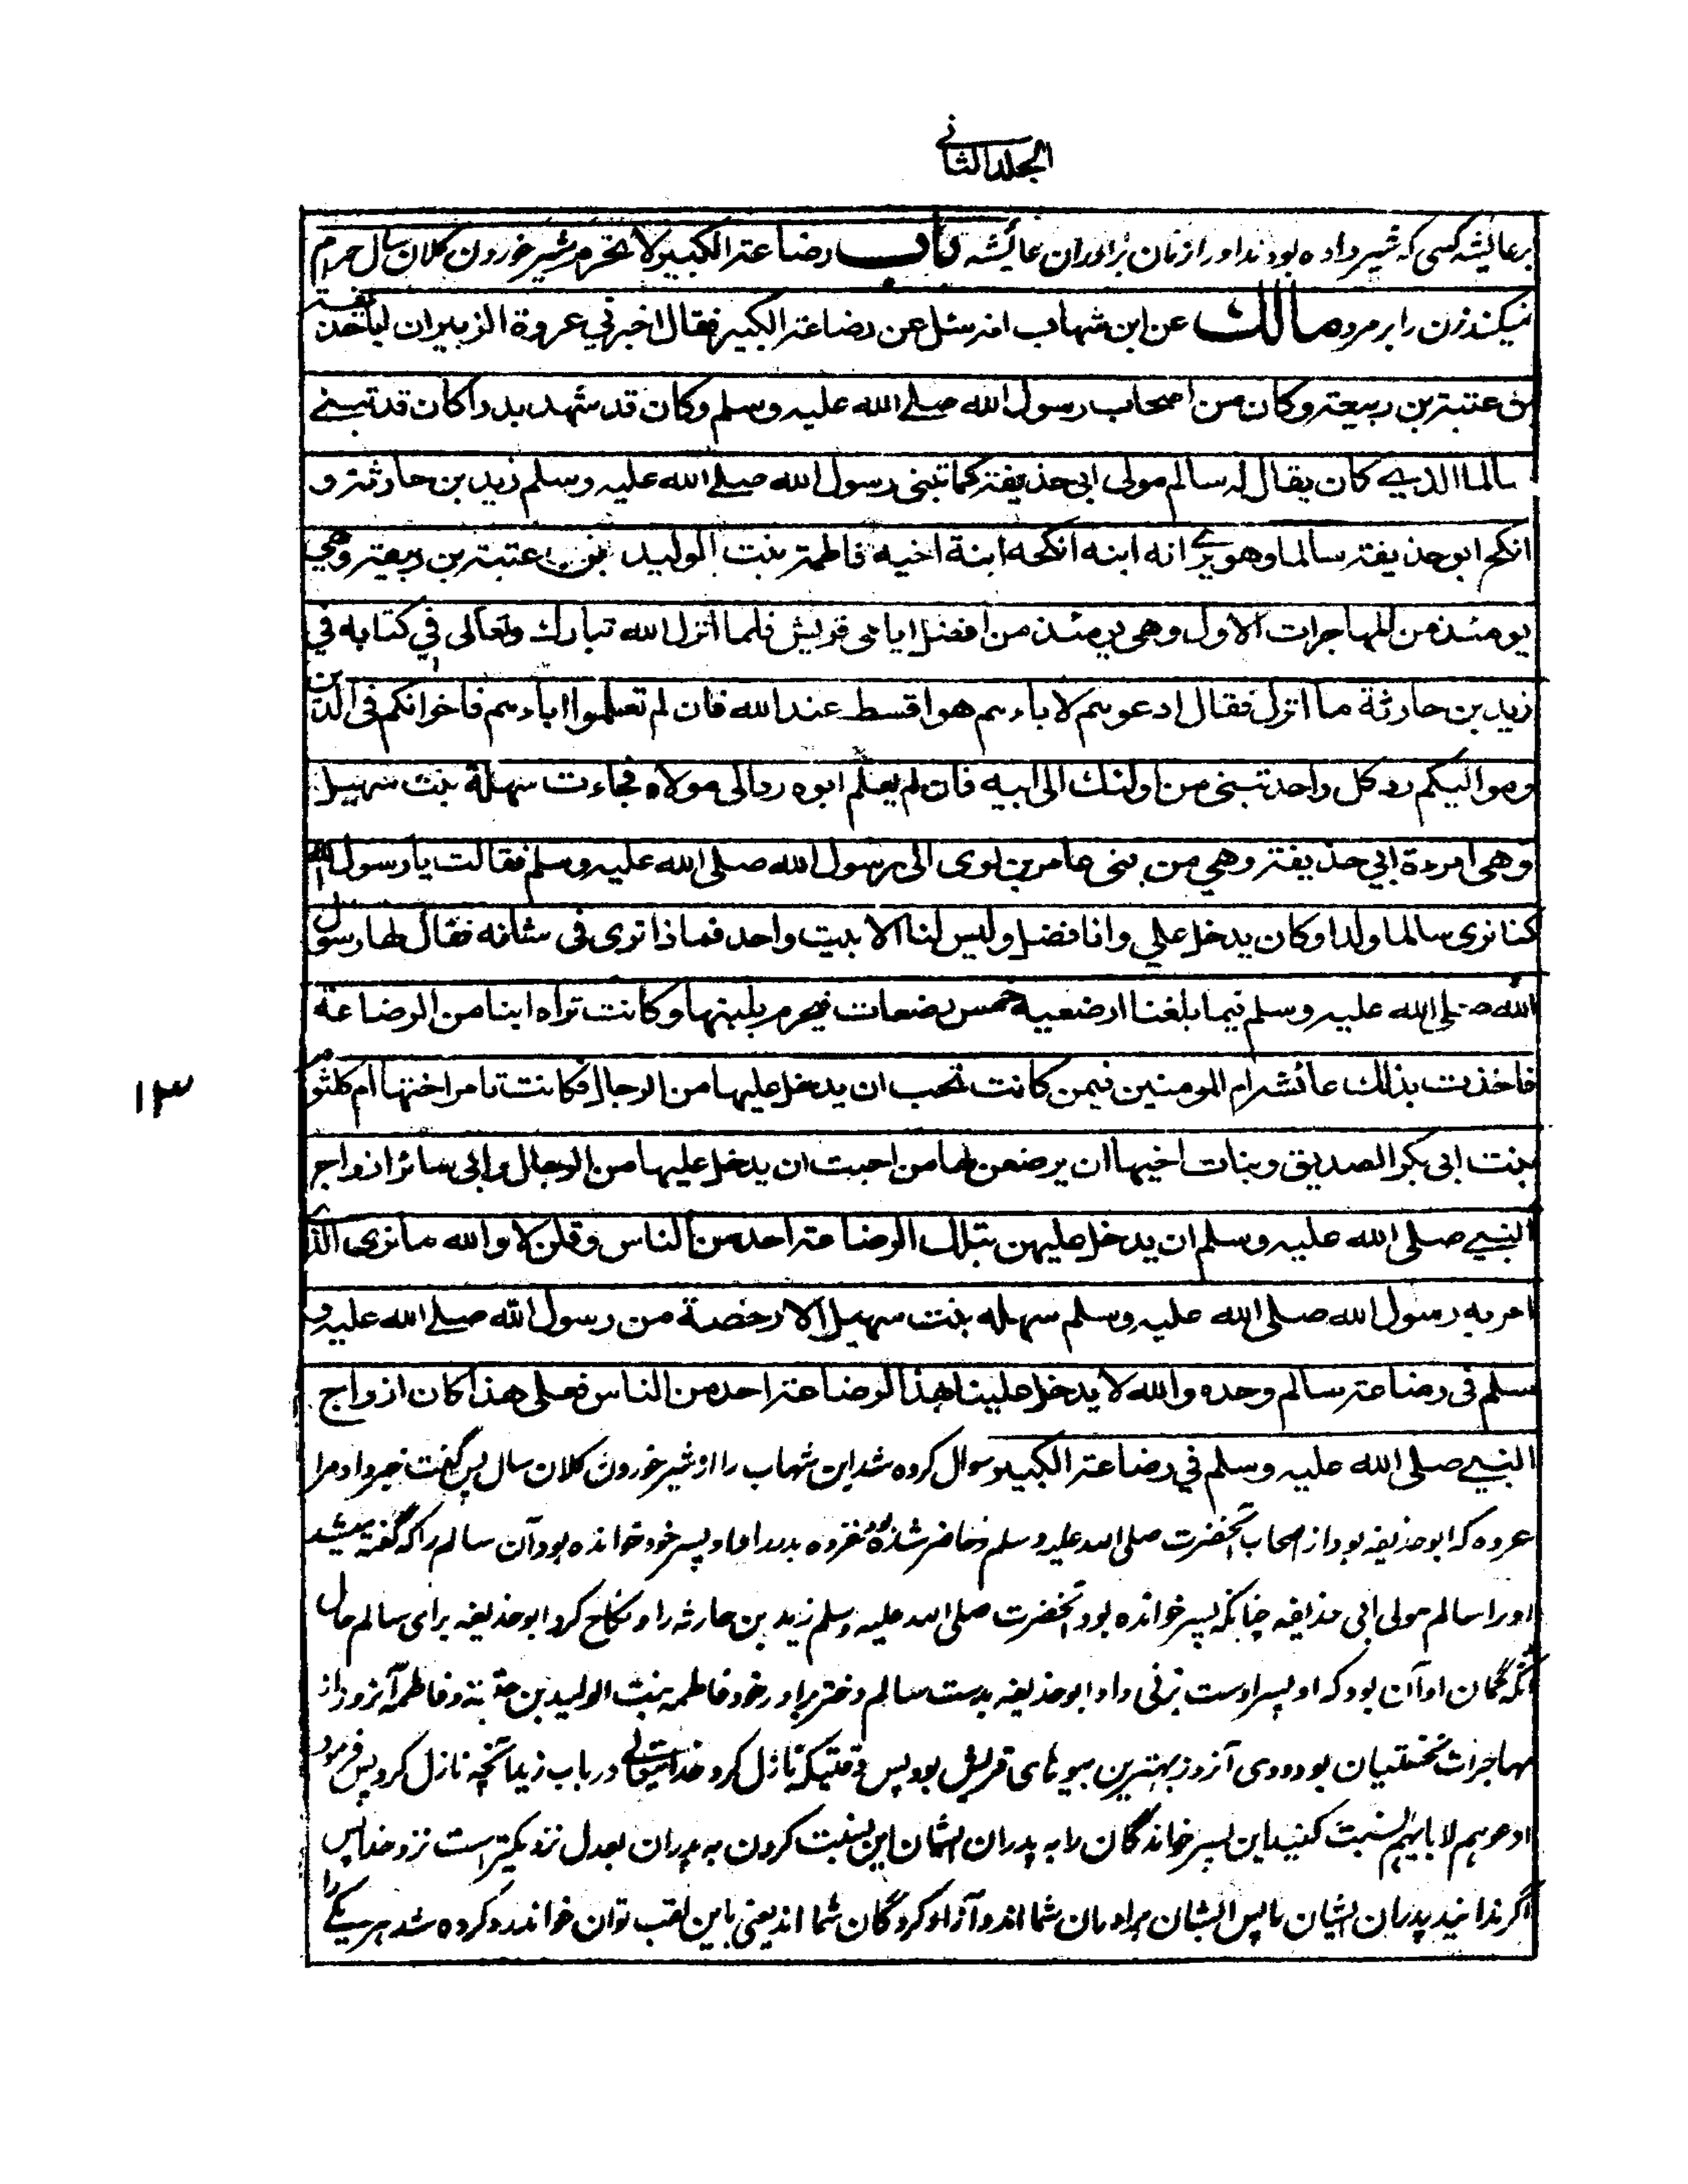 الجلد الثانے
بر عائیشہ کسی کہ شیر داده بودند اورا زنان برادران عائیشہ باب رضاعۃ الکبیر لا تحرم شیر خوردن کلان سال حرام
نمیکند زن را بر مرد مالك عن ابن شهاب انہ سئل عن رضاعۃ الکبیر فقال اخبرني عروة الزبیر ان اباحذیفۃ
بن عتبۃ بن ربیعۃ وکان من اصحاب رسول الله صلے الله علیہ وسلم وکان قد شهد بدرا کان قد تبنے
سالما الذیے کان یقال لہ سالم مولی ابی حذیفۃ کما تبنی رسول الله صلے الله علیہ وسلم زید بن حارثۃ و
انکح ابو حذیفۃ سالما وهو یرے انه ابنه انکحه ابنة اخیه فاطمۃ بنت الولید بن عتبۃ بن ربیعۃ وهي
یومئذ من المهاجرات الاول وهی یومئذ من افضل ایامی قریش فلما انزل الله تبارك وتعالی في کتابه في
زید بن حارثة ما انزل فقال ادعوہم لاباءہم هو اقسط عند الله فان لم تعلموا اباءہم فاخوانکم فی الدین
وموالیکم رد کل واحد تبنی من اولئك الی ابیه فان لم یعلم ابوه رد الی مولاه فجاءت سهلة بنت سهیل
وهی امرءة ابي حذیفۃ وهي من بنی عامر بن لوی الی رسول الله صلی الله علیہ وسلم فقالت یا رسول الله
کنا نری سالما ولدا وکان یدخل علي وانا فضل ولیس لنا الا بیت واحد فماذا تری فی شانه فقال لها رسول
الله صلی الله علیہ وسلم فیما بلغنا ارضعیه خمس رضعات فیحرم بلبنها وکانت تراه ابنا من الرضاعة
فاخذت بذلك عائشہ ام المومنین فیمن کانت تحب ان یدخل علیها من الرجال فکانت تامر اختها ام کلثوم
بنت ابی بکر الصدیق وبنات اخیها ان یرضعن لها من احبت ان یدخل علیها من الرجال وابی سائر ازواج
النبیے صلی الله علیہ وسلم ان یدخل علیهن بتلك الرضاعۃ احد من الناس وقلن لا والله ما نری الذ
امر به رسول الله صلی الله علیہ وسلم سهله بنت سهیل الا رخصة من رسول الله صلے الله علیہ و
سلم فی رضاعۃ سالم وحده والله لا یدخل علینا بهذا الرضاعۃ احد من الناس فعلی هذا کان ازواج
النبیے صلی الله علیہ وسلم في رضاعۃ الکبیر سوال کرده شد ابن شہاب را از شیر خوردن کلان سال پس گفت خبر داد مرا
عروه کہ ابو حذیفہ بود از اصحاب آنحضرت صلی اللہ علیہ وسلم و حاضر شده بود غزوه بدر را و او پسر خود خوانده بود آن سالم را کہ گفتہ میشد
اورا سالم مولی ابی حذیفہ چنانکہ پسر خوانده بود آنحضرت صلی اللہ علیہ وسلم زید بن حارثہ را و نکاح کرد ابو حذیفہ برای سالم حال
آنکہ گمان او آن بود کہ او پسر اوست بزنی داد ابو حذیفہ بدست سالم دختر برادر خود فاطمہ بنت الولید بن عتبہ و فاطمہ آنروز از
مہاجرات نخستیان بود و وی آنروز بہترین بیوہای قریش بود پس وقتیکہ نازل کرد خدایتعالی در باب زید آنچہ نازل کرد پس فرمود
ادعوہم لاباىہم نسبت کنید این پسر خواندگان را بہ پدران ایشان این نسبت کردن بہ پدران بعدل نزدیکتر است نزد خدا پس
اگر ندانید پدران ایشان را پس ایشان برادران شما اند و آزاد کردگان شما اند یعنی باین لقب توان خواند رد کرده شد ہر یکے را
۱۳